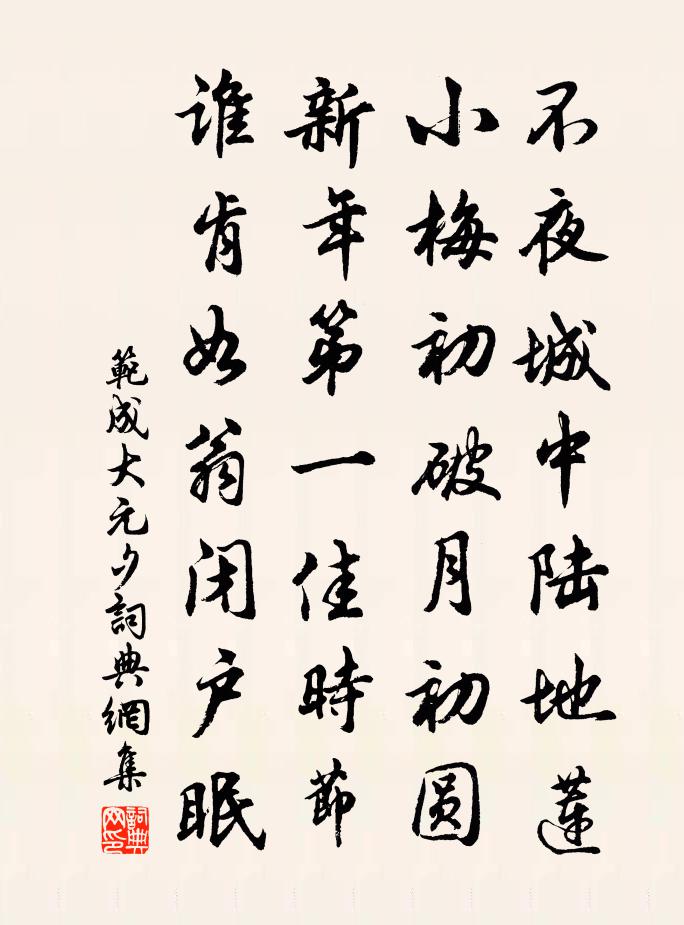 不夜城中陆地莲
小梅初破月初圆
新年第一佳時節
谁肯如翁闭户眠
範成大元夕詞典網集
詞典網印